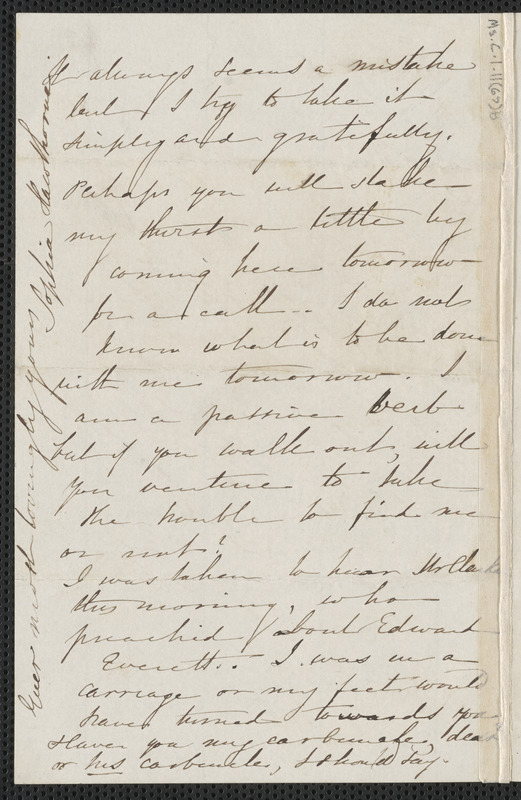 It always seems a mistake
but I try to take it
simply and gratefully.
Perhaps you will slake
my thirst a little by
coming here tomorrow
for a call -- I do not
know what is to be done
with me tomorrow. I
am a passive verb
but if you walk out, will
you venture to take
the trouble to find me
or not?
I was taken to hear Mr Clarke
this morning, who
preached about Edward
Everett. I was in a
carriage or my feet would
have turned towards you
Have you my carbuncle, dear
or his carbuncle, I should say.
Ever most lovingly yours
Sophia Hawthorne
Ms.C.1.11(67)b